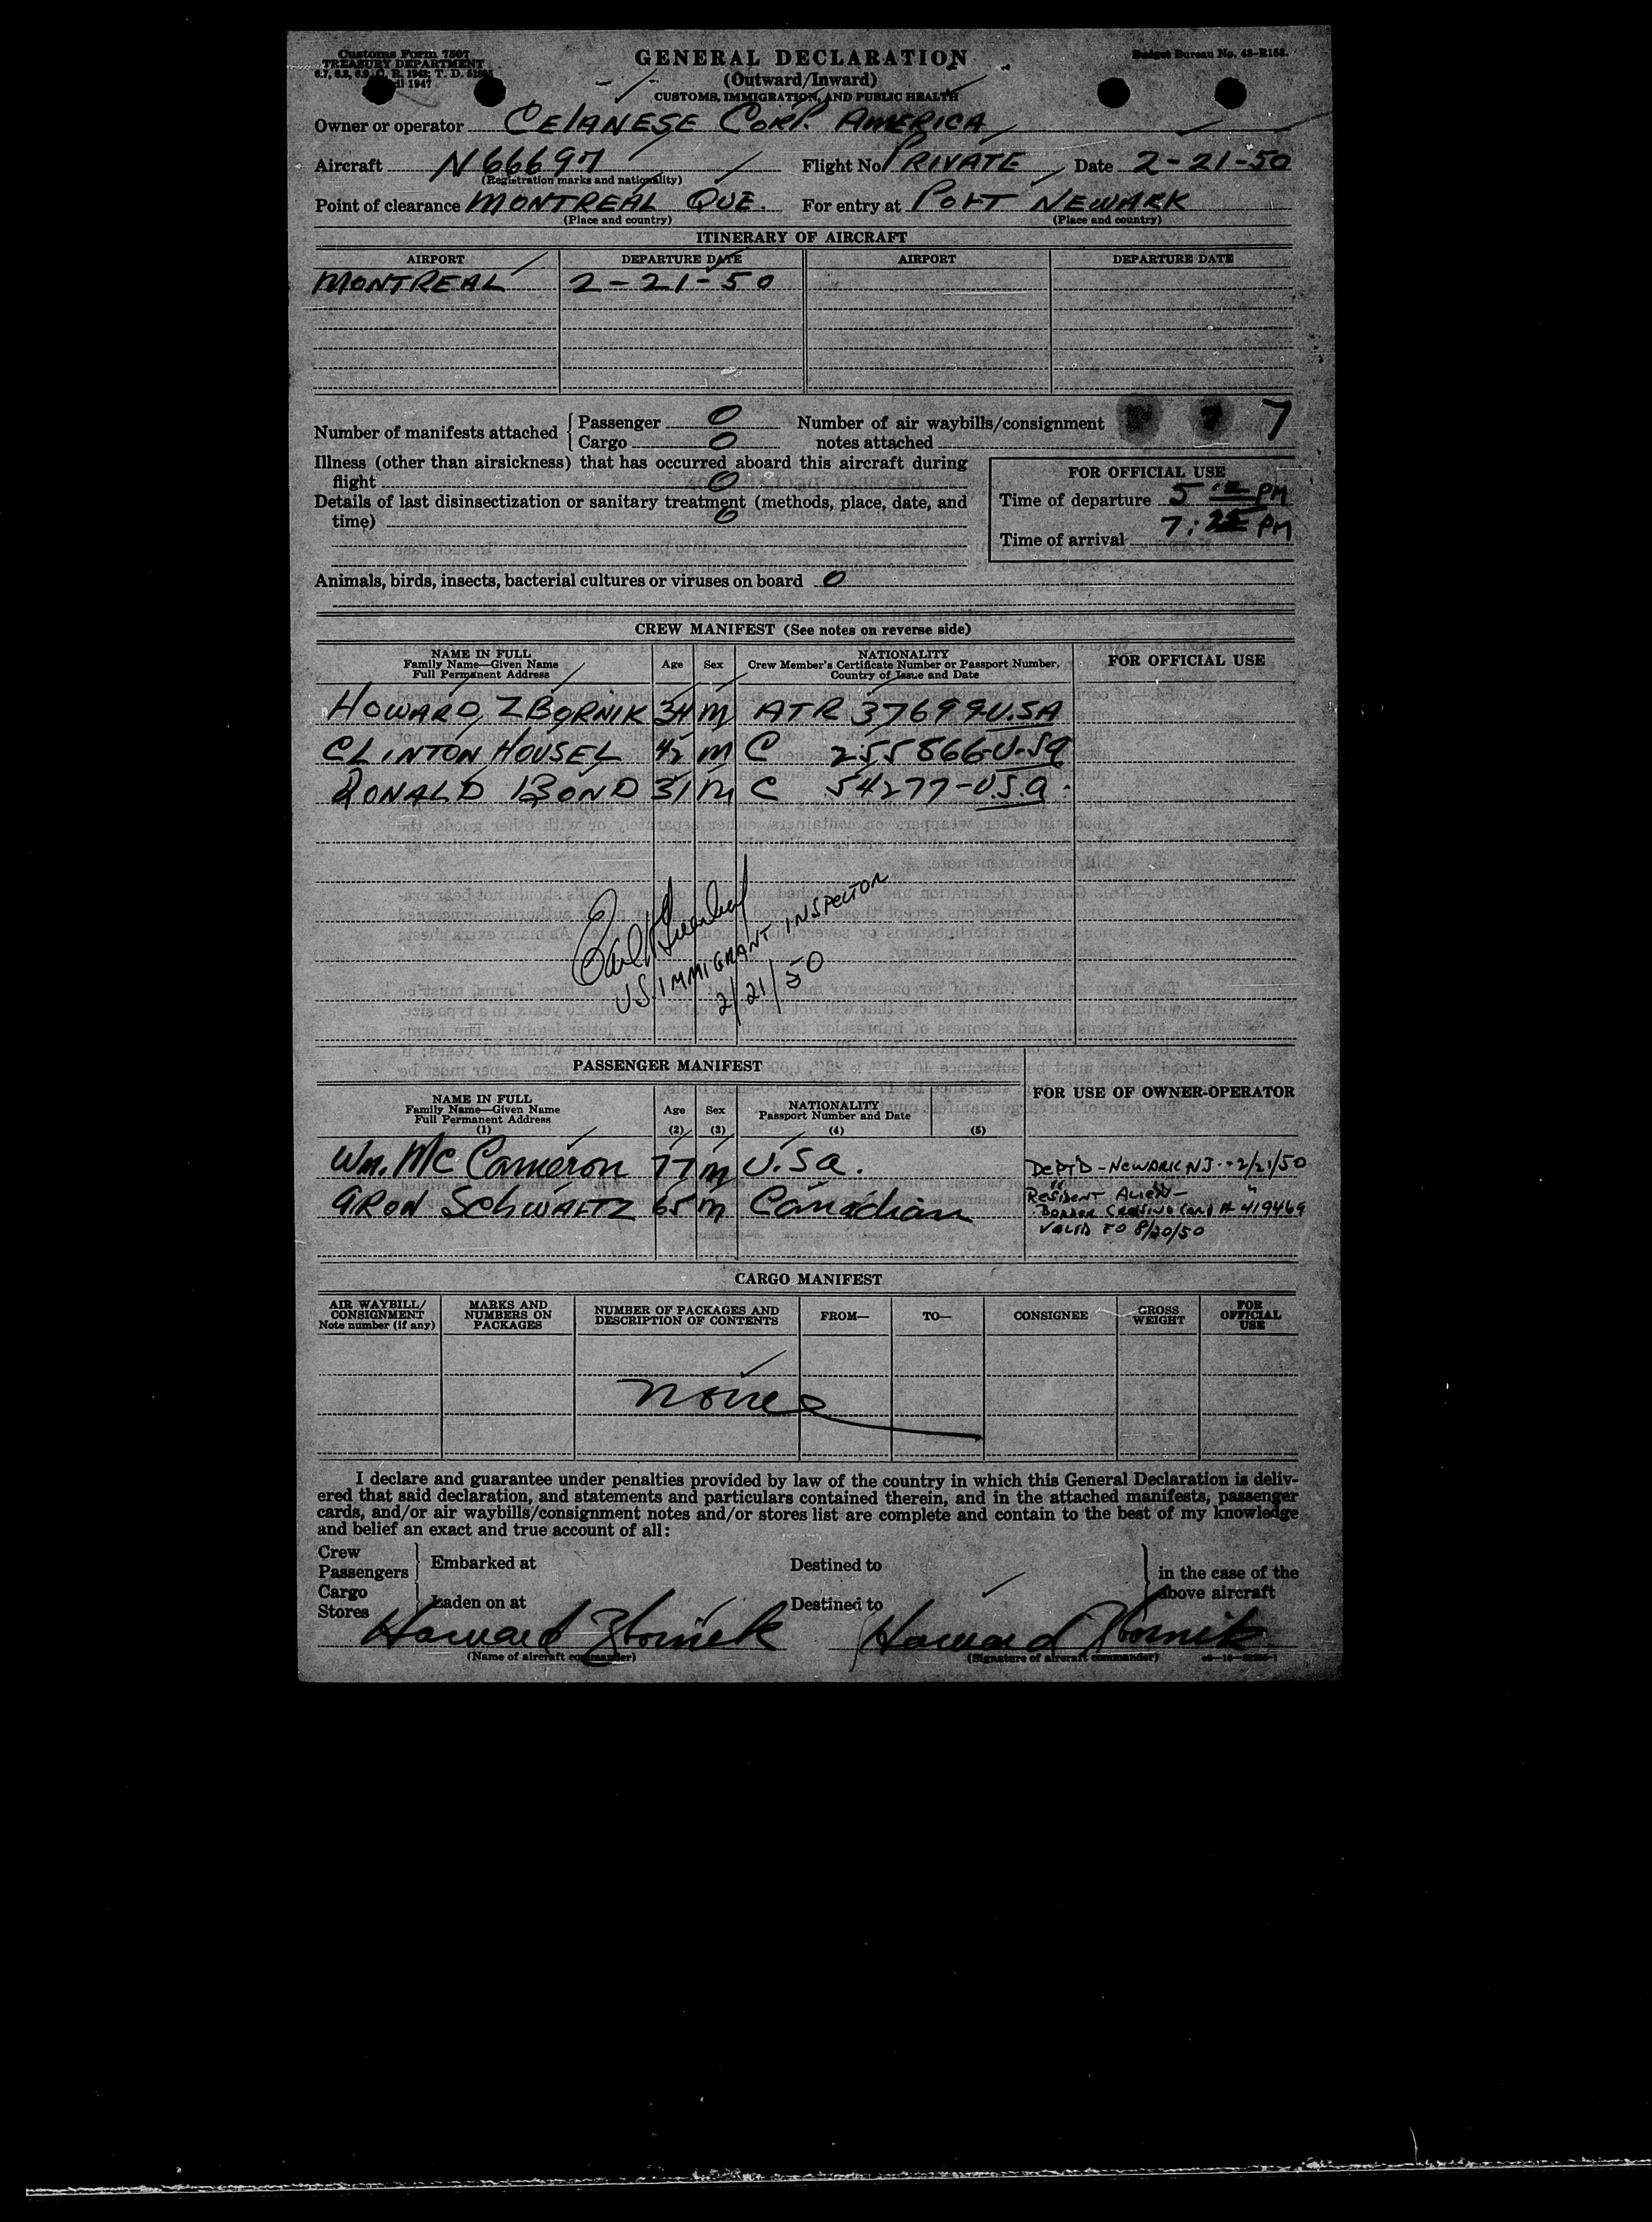 Customs Form 7507
TREASURY DEPARTMENT
1947
GENERAL DECLARATION
(Outward/Inward)
CUSTOMS, IMMIGRATION, AND PUBLIC HEALTH
Budget Bureau No. 48-R158.
Owner or operator CElANESE CORP. AMERICA
Aircraft N66697 Flight No PRIVATE Date 2-21-50
(Registration marks and nationality)
Point of clearance MONTREAL QUE. For entry at PORT NEWARK
(Place and country) (Place and country)
ITINERARY OF AIRCRAFT
AIRPORT DEPARTURE DATE AIRPORT DEPARTURE DATE
MONTREAL 2-21-50
Number of manifests attached Passenger 0 Number of air waybills/consignment 7
Cargo 0 notes attached
Illness (other than airsickness) that has occurred aboard this aircraft during
flight 0
Details of last disinsectization or sanitary treatment (methods, place, date, and
time) 0
FOR OFFICIAL USE
Time of departure 5 PM
Time of arrival 7: PM
Animals, birds, insects, bacterial cultures or viruses on board 0
CREW MANIFEST (See notes on reverse side)
NAME IN FULL
Family Name—Given Name
Full Permanent Address
Age Sex
NATIONALITY
Crew Member's Certificate Number or Passport Number,
Country of Issue and Date
FOR OFFICIAL USE
HOWARD ZBORNIK 34 M ATR 37699-U.SA
CLINTON HOUSEL 42 M C 255866-U-Sa
RONALD BOND 31 M C 54277-U.S.a.
US IMMIGRANT INSPECTOR
2/21/50
PASSENGER MANIFEST
FOR USE OF OWNER-OPERATOR
NAME IN FULL
Family Name—Given Name
Full Permanent Address
(1)
Age
(2)
Sex
(3)
NATIONALITY
Passport Number and Date
(4) (5)
Wm. Mc Cameron 77 m U.Sa. DEPT'D - NEWARK NJ - 2/21/50
ARON SchWARTZ 65 m Canadian RESIDENT ALIEN -
BORDER CROSSING CARD # 419469
VALID TO 8/20/50
CARGO MANIFEST
AIR WAYBILL/
CONSIGNMENT
Note number (if any)
MARKS AND
NUMBERS ON
PACKAGES
NUMBER OF PACKAGES AND
DESCRIPTION OF CONTENTS
FROM— TO— CONSIGNEE
GROSS
WEIGHT
FOR
OFFICIAL
USE
none
I declare and guarantee under penalties provided by law of the country in which this General Declaration is deliv-
ered that said declaration, and statements and particulars contained therein, and in the attached manifests, passenger
cards, and/or air waybills/consignment notes and/or stores list are complete and contain to the best of my knowledge
and belief an exact and true account of all:
Crew
Passengers Embarked at Destined to in the case of the
Cargo above aircraft
Stores Laden on at Destined to
Howard Zbornik Howard Zbornik
(Name of aircraft commander) (Signature of aircraft commander)